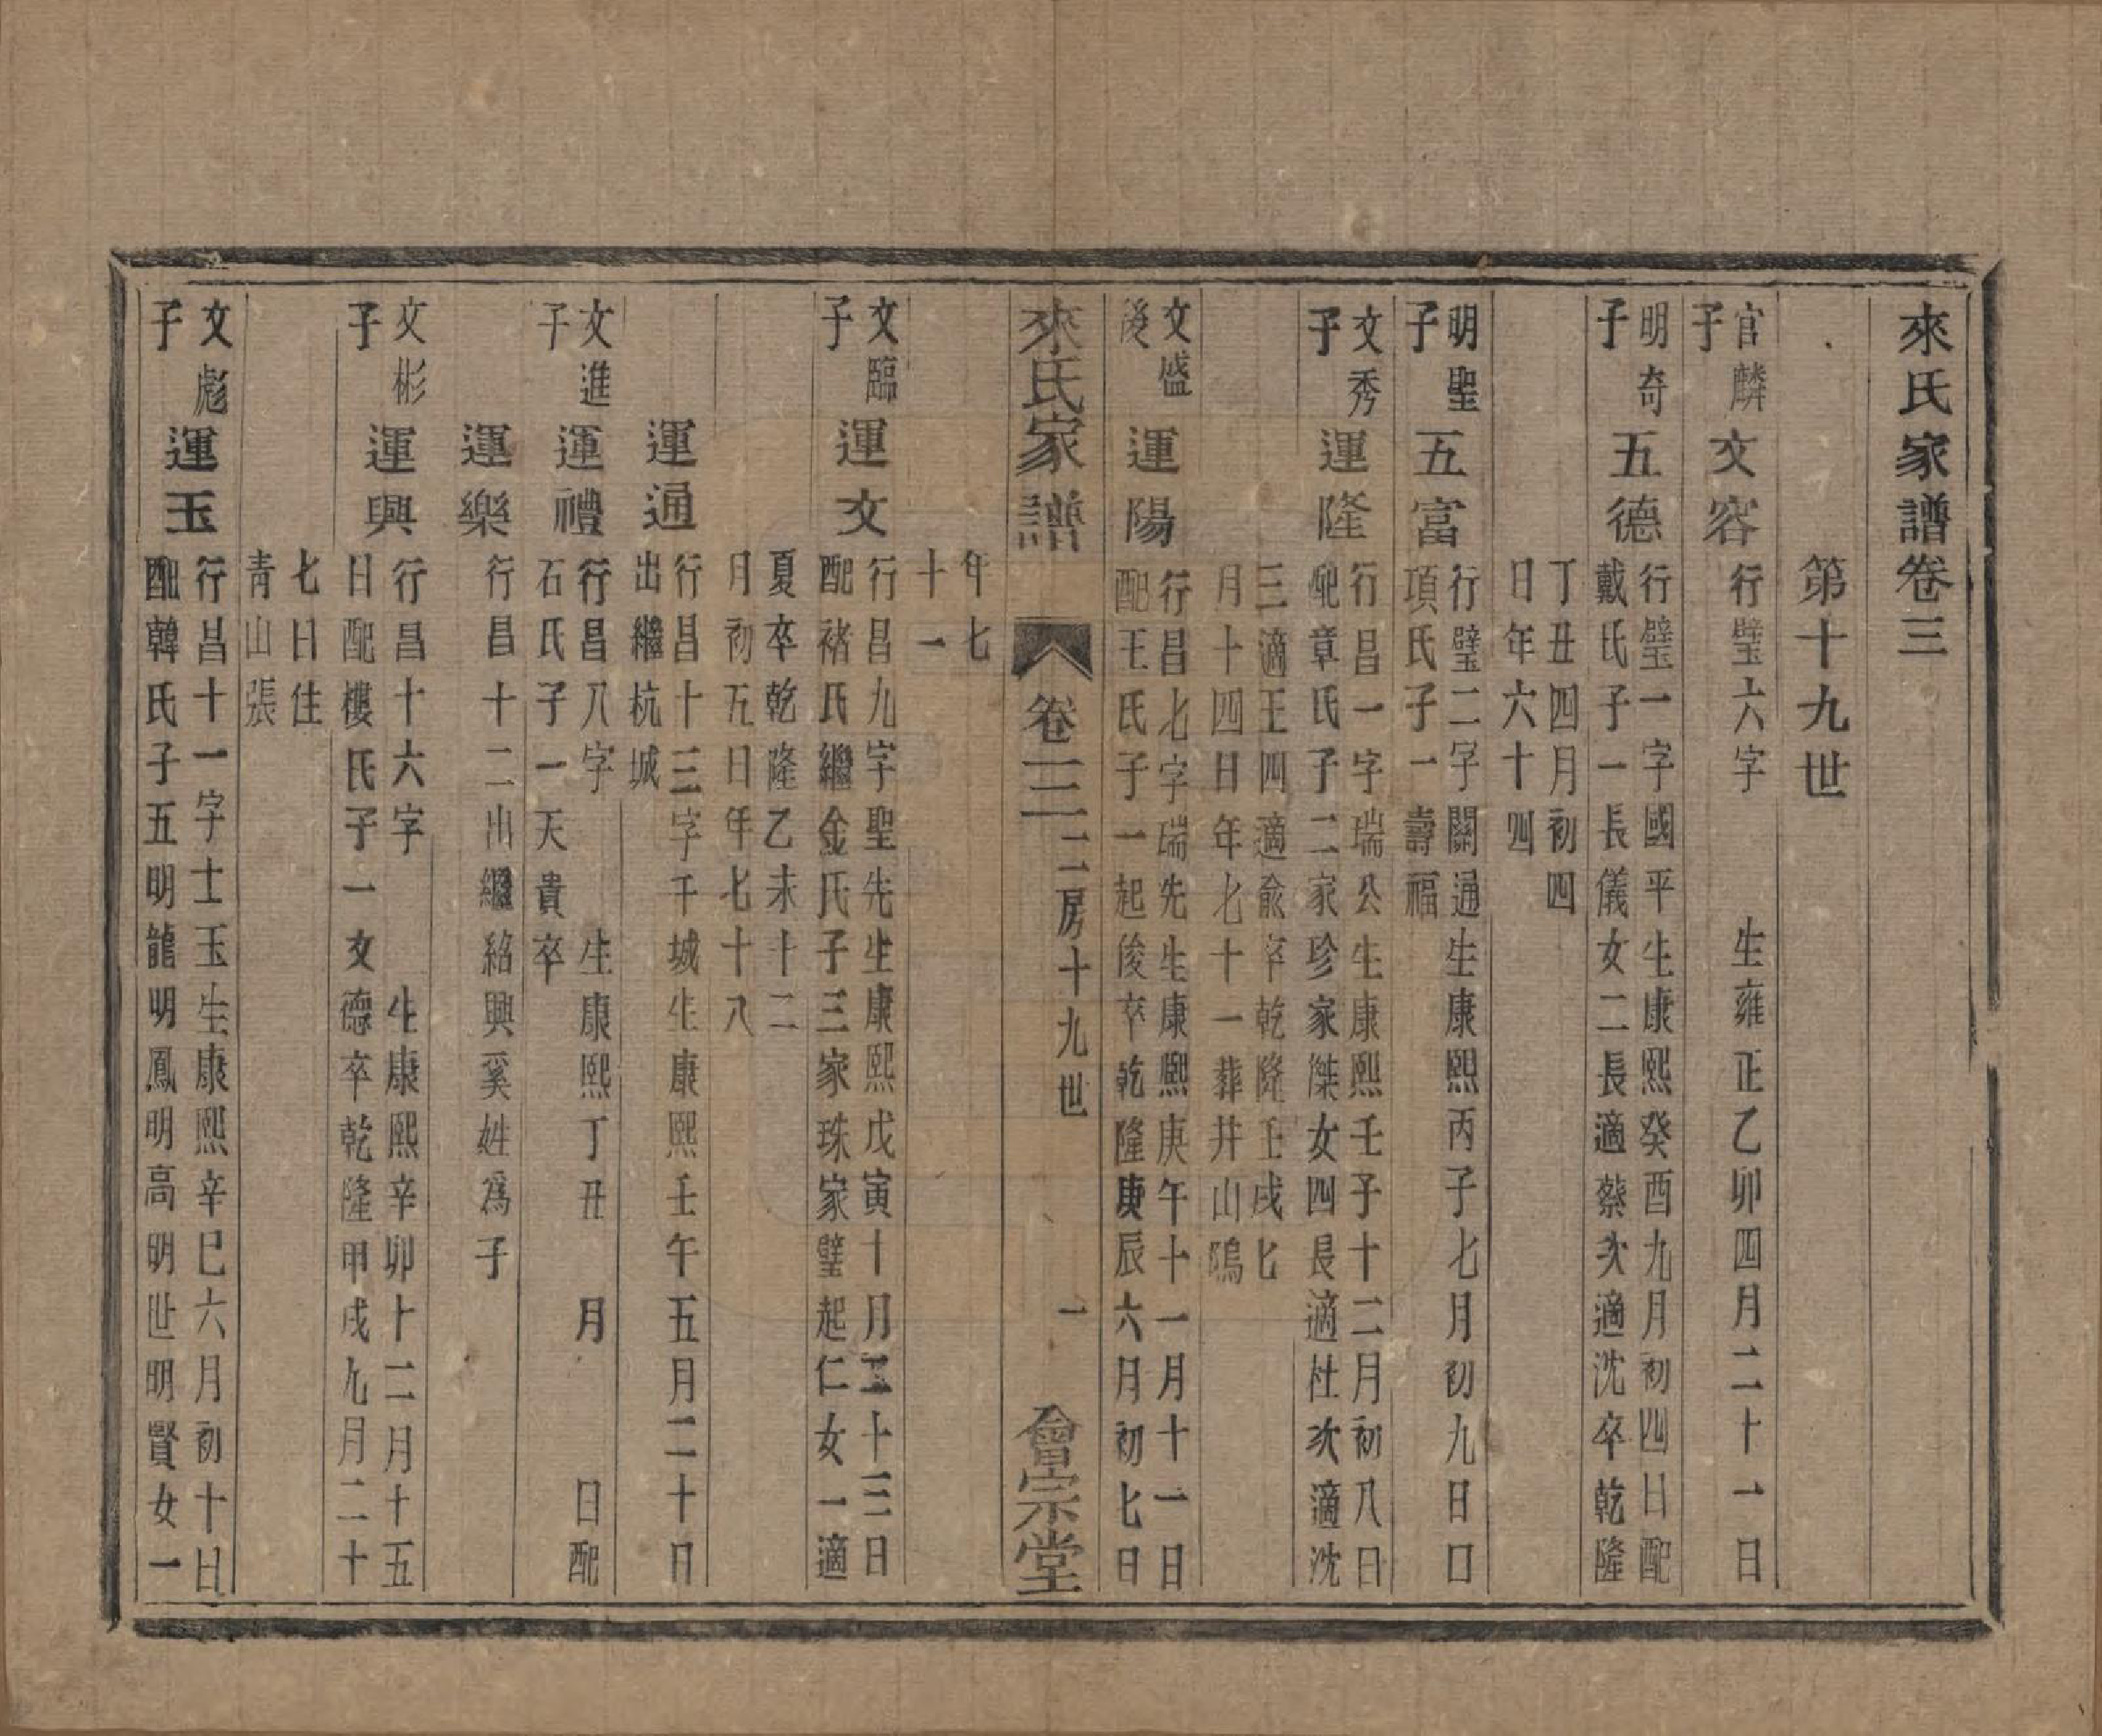 來氏家譜卷三
第十九世
官麟子
文容
行璧六字　　生雍正乙卯四月二十一日
明奇子
五德
行璧一字國平生康熙癸酉九月初四日配
戴氏子一長儀女二長適蔡次適沈卒乾隆
丁丑四月初四
日年六十四
明聖子
五富
行璧二字關通生康熙丙子七月初九日口
項氏子一壽福
文秀子
運隆
行昌一字瑞公生康熙壬子十二月初八日
配章氏子二家珍家傑女四長適杜次適沈
三適王四適俞卒乾隆壬戌七
月十四日年七十一葬井山隖
文盛後
運陽
行昌七字瑞先生康熙庚午十一月十一日
配王氏子一起俊卒乾隆庚辰六月初七日
來氏家譜　卷三　二房十九世　一　會宗堂
年七
十一
文臨子
運文
行昌九字聖先生康熙戊寅十月二十三日
配褚氏繼金氏子三家珠家璧起仁女一適
夏卒乾隆乙未十二
月初五日年七十八
運通
行昌十三字千城生康熙壬午五月二十日
出繼杭城
文進子
運禮
行昌八字　　生康熙丁丑　月　　日配
石氏子一天貴卒
運樂
行昌十二出繼紹興奚姓爲子
文彬子
運興
行昌十六字　　生康熙辛卯十二月十五
日配樓氏子一文德卒乾隆甲戌九月二十
七日住
靑山張
文彪子
運玉
行昌十一字士玉生康熙辛巳六月初十日
配韓氏子五明龍明鳳明高明世明賢女一